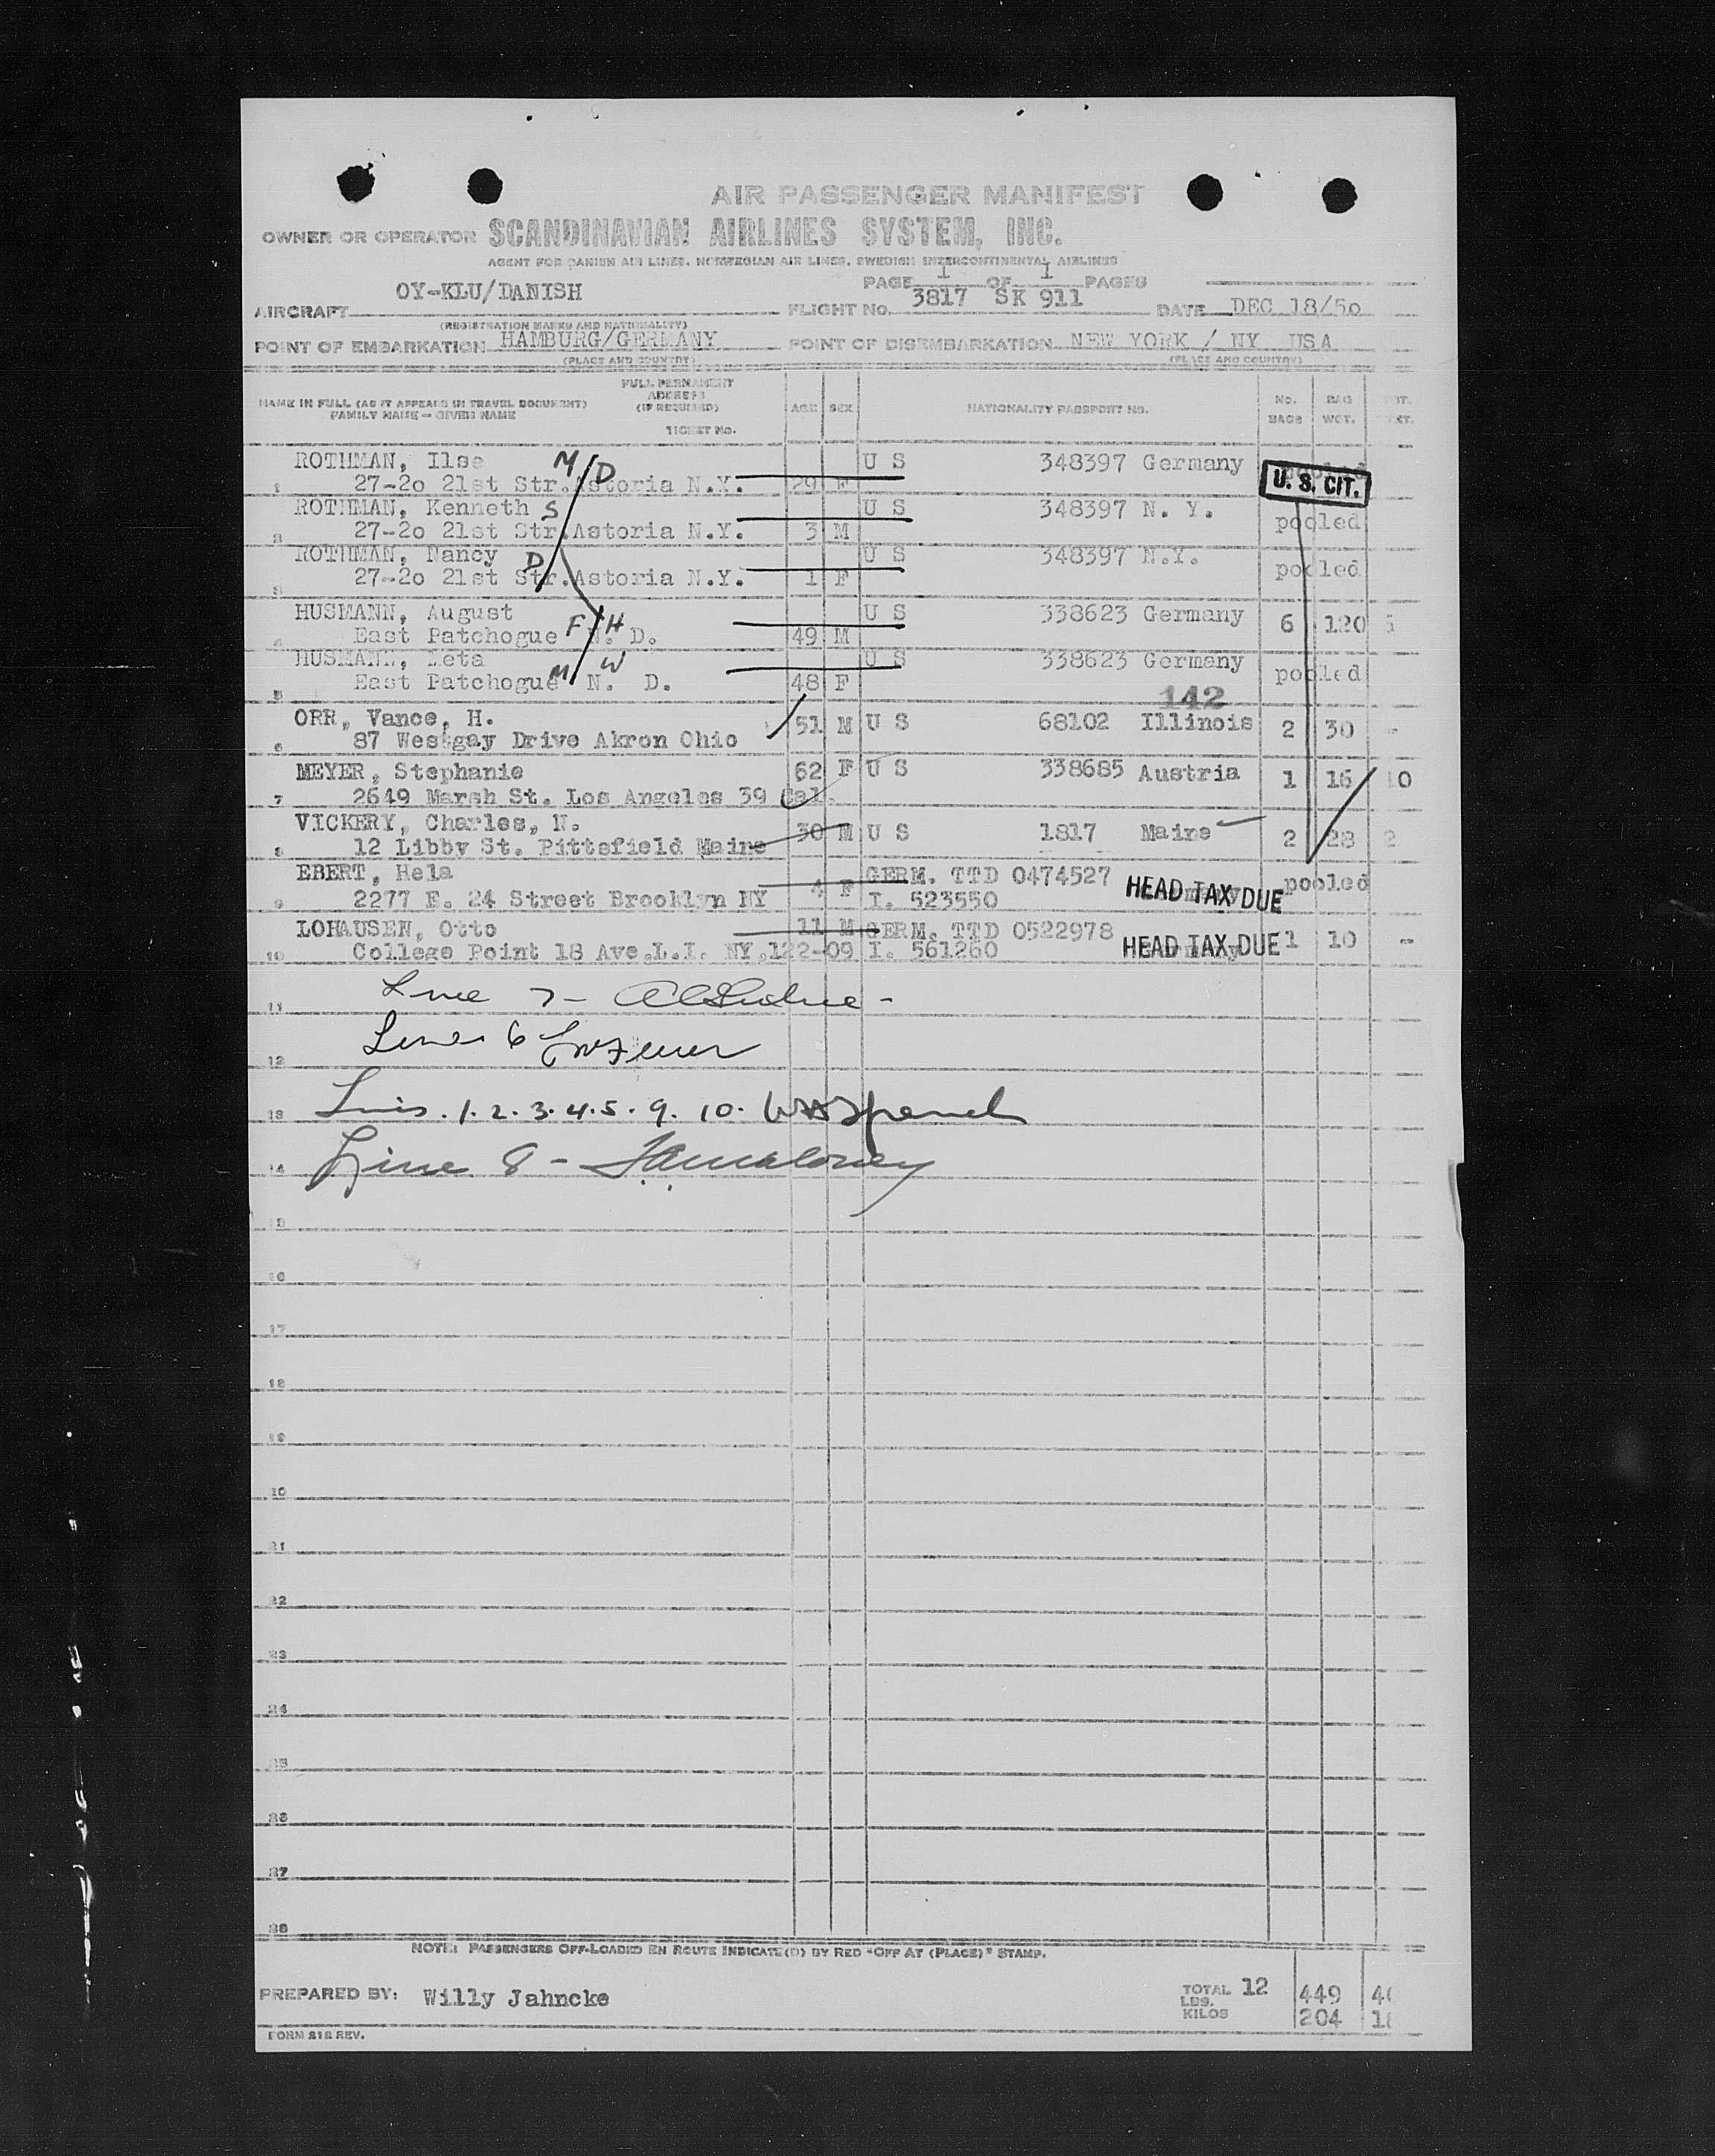 AIR PASSENGER MANIFEST
OWNER OR OPERATOR SCANDINAVIAN AIRLINES SYSTEM, INC.
AGENT FOR DANISH AIR LINES, NORWEGIAN AIR LINES, SWEDISH INTERCONTINENTAL AIRLINES
PAGE 1 OF 1 PAGES
AIRCRAFT OY-KLU/DANISH FLIGHT No. 3817 SK 911 DATE DEC 18/5o
(REGISTRATION MARKS AND NATIONALITY)
POINT OF EMBARKATION HAMBURG/GERMANY POINT OF DISEMBARKATION NEW YORK / NY USA
(PLACE AND COUNTRY) (PLACE AND COUNTRY)
NAME IN FULL (AS IT APPEARS IN TRAVEL DOCUMENT) FAMILY NAME — GIVEN NAME FULL PERMANENT ADDRESS (IF REQUIRED) TICKET No. AGE SEX NATIONALITY PASSPORT NO. No. BAGS BAG WGT.
ROTHMAN, Ilse M/D U S 348397 Germany pooled U. S. CIT.
1 27-2o 21st Str.Astoria N.Y. 29 F
ROTHMAN, Kenneth S U S 348397 N. Y.
2 27-2o 21st Str.Astoria N.Y. 3 M pooled
ROTHMAN, Nancy D U S 348397 N.Y.
3 27-2o 21st Str.Astoria N.Y. 1 F pooled
HUSMANN, August F/H U S 338623 Germany
4 East Patchogue N. D. 49 M 6 120 5
HUSMANN, Meta M/W U S 338623 Germany
5 East Patchogue N. D. 48 F pooled
142
ORR, Vance, H. 51 M U S 68102 Illinois 2 30 -
6 87 Westgay Drive Akron Ohio
MEYER, Stephanie 62 F U S 338685 Austria 1 16 10
7 2649 Marsh St. Los Angeles 39 Cal.
VICKERY, Charles, N. 30 M U S 1817 Maine 2 28 2
8 12 Libby St. Pittsfield Maine
EBERT, Hela 4 F GERM. TTD 0474527 HEAD TAX DUE pooled
9 2277 E. 24 Street Brooklyn NY I. 523550
LOHAUSEN, Otto 11 M GERM. TTD 0522978 HEAD TAX DUE 1 10 -
10 College Point 18 Ave.L.I. NY,122-09 I. 561260
11 Line 7-
12 Line 6
13 Lines. 1. 2. 3. 4. 5. 9. 10.
14 Line 8 -
15
16
17
18
19
20
21
22
23
24
25
26
27
28
NOTE: PASSENGERS OFF-LOADED EN ROUTE INDICATE(D) BY RED "OFF AT (PLACE)" STAMP.
PREPARED BY: Willy Jahncke TOTAL 12
LBS. 449
KILOS 204
FORM 212 REV.